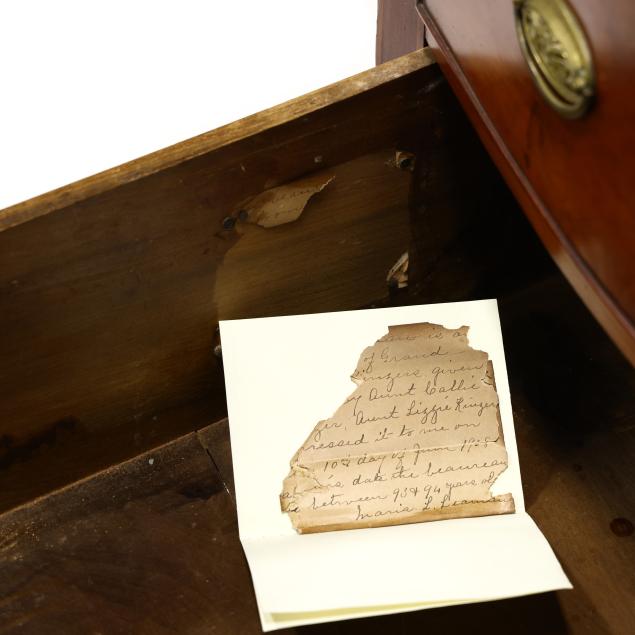 is a
of Grand
ingers given
y Aunt Callie
ger, Aunt Lizzie Ringer
ressed it to me on
10th day of June 1928
date the beaureau
between 93 & 94 years old
Maria L. Leaman